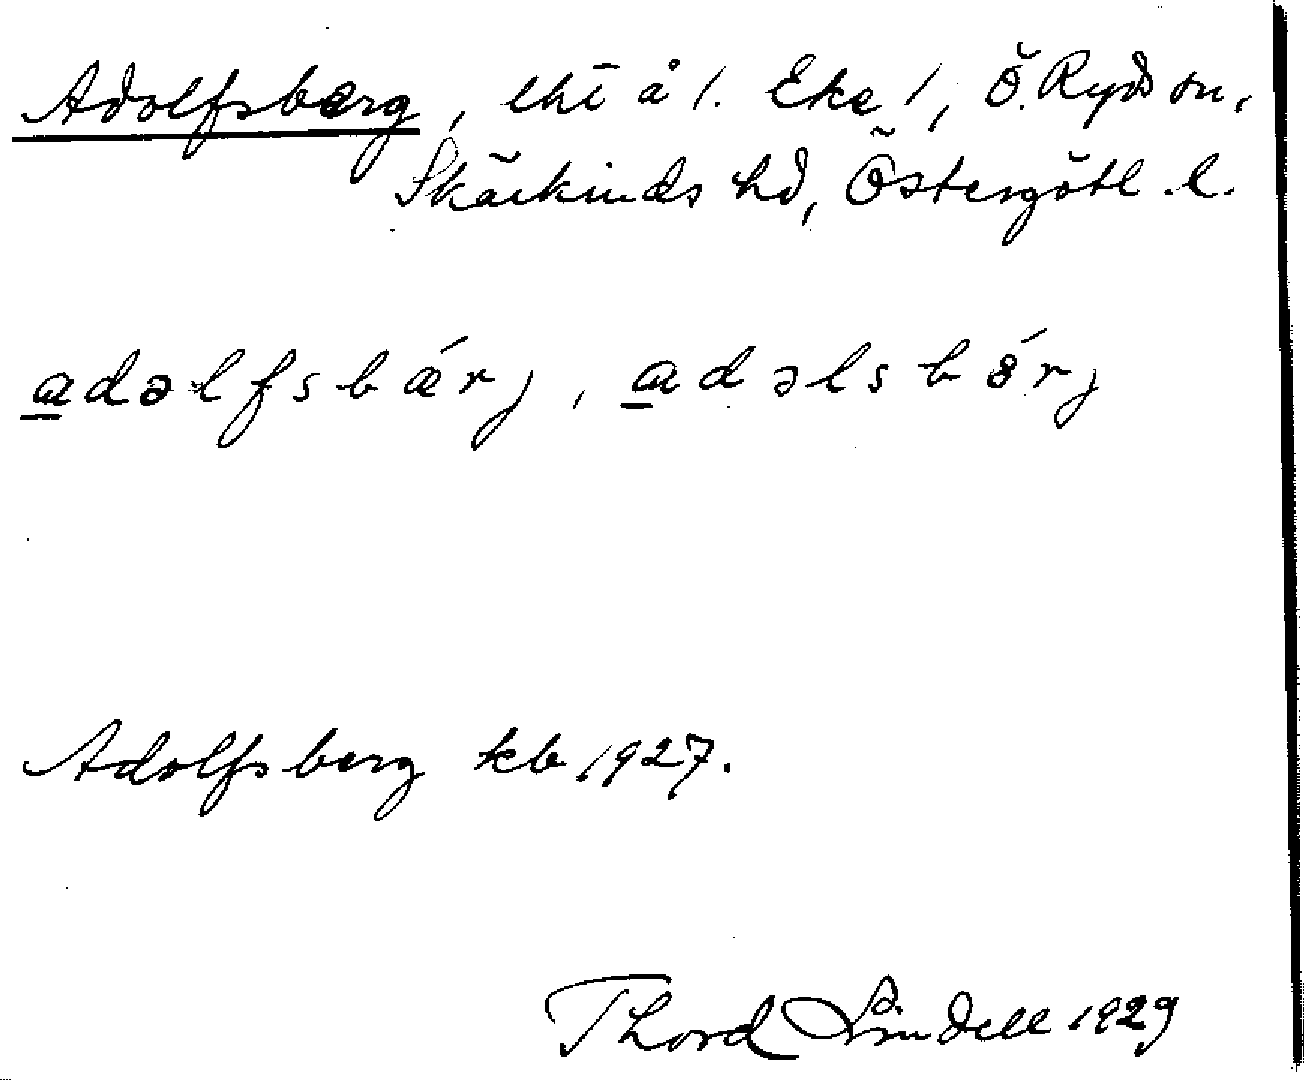 Adolfsberg, lht å 1. Eke 1, Ö. Ryds sn,
Skärkinds hd, Östergötl. l.
adəlfsbǽrj, adəlsbɞ́rj
Adolfsberg kb 1927.
Thord Lindell 1929